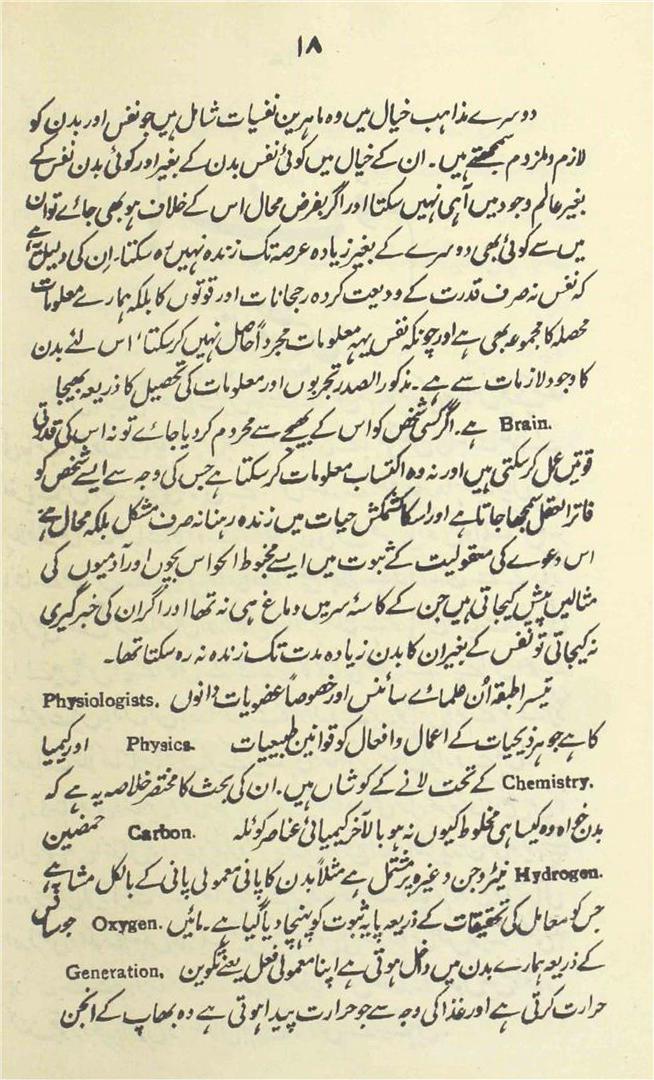 ۱۸
دوسرے مذاہب خیال میں وہ ماہرین نفسیات شامل ہیں جو نفس اور بدن کو
لازم و ملزوم سمجھتے ہیں۔ ان کے خیال میں کوئی نفس بدن کے بغیر اور کوئی بدن نفس کے
بغیر عالم وجود میں آہی نہیں سکتا اور اگر بفرض محال اس کے خلاف ہو بھی جائے تو ان
میں سے کوئی بھی دوسرے کے بغیر زیادہ عرصہ تک زندہ نہیں رہ سکتا۔ اِن کی دلیل یہ ہے
کہ نفس نہ صرف قدرت کے ودیعت کردہ رجحانات اور قوتوں کا بلکہ ہمارے معلومات
محصلہ کا مجموعہ بھی ہے اور چونکہ نفس یہہ معلومات مجرداً حاصل نہیں کر سکتا' اس لئے بدن
کا وجود لازمات سے ہے۔ مذکور الصدر تجربوں اور معلومات کی تحصیل کا ذریعہ بھیجا
Brain. ہے۔ اگر کسی شخص کو اس کے بھیجے سے محروم کر دیا جائے تو نہ اس کی قدرتی
قوتیں عمل کر سکتی ہیں اور نہ وہ اکتساب معلومات کر سکتا ہے جس کی وجہ سے ایسے شخص کو
فاتر العقل سمجھا جاتا ہے اور اسکا کشمکش حیات میں زندہ رہنا نہ صرف مشکل بلکہ محال ہے
اس دعوے کی معقولیت کے ثبوت میں ایسے مخبوط الحواس بچوں اور آدمیوں کی
مثالیں پیش کیجاتی ہیں جن کے کاسۂ سر میں دماغ ہی نہ تھا اور اگر ان کی خبر گیری
نہ کیجاتی تو نفس کے بغیر ان کا بدن زیادہ مدت تک زندہ نہ رہ سکتا تھا۔
تیسرا طبقہ اُن علمائے سائنس اور خصوصاً عضویات دانوں Physiologists.
کا ہے جو ہر ذیحیات کے اعمال و افعال کو قوانین طبیعیات Physics. اور کیمیا
Chemistry. کے تحت لانے کے کوشاں ہیں۔ ان کی بحث کا مختصر خلاصہ یہ ہے کہ
بدن خواہ وہ کیسا ہی مخلوط کیوں نہ ہو بالآخر کیمیائی عناصر کوئلہ Carbon. حمضین
Hydrogen. نیٹروجن وغیرہ پر مشتمل ہے مثلاً بدن کا پانی معمولی پانی کے بالکل مشابہ ہے
جس کو معامل کی تحقیقات کے ذریعہ پایۂ ثبوت کو پہنچا دیا گیا ہے۔ مائیں Oxygen. جو سانس
کے ذریعہ ہمارے بدن میں داخل ہوتی ہے اپنا معمولی فعل یعنے تکوین Generation.
حرارت کرتی ہے اور غذا کی وجہ سے جو حرارت پیدا ہوتی ہے وہ بھاپ کے انجن